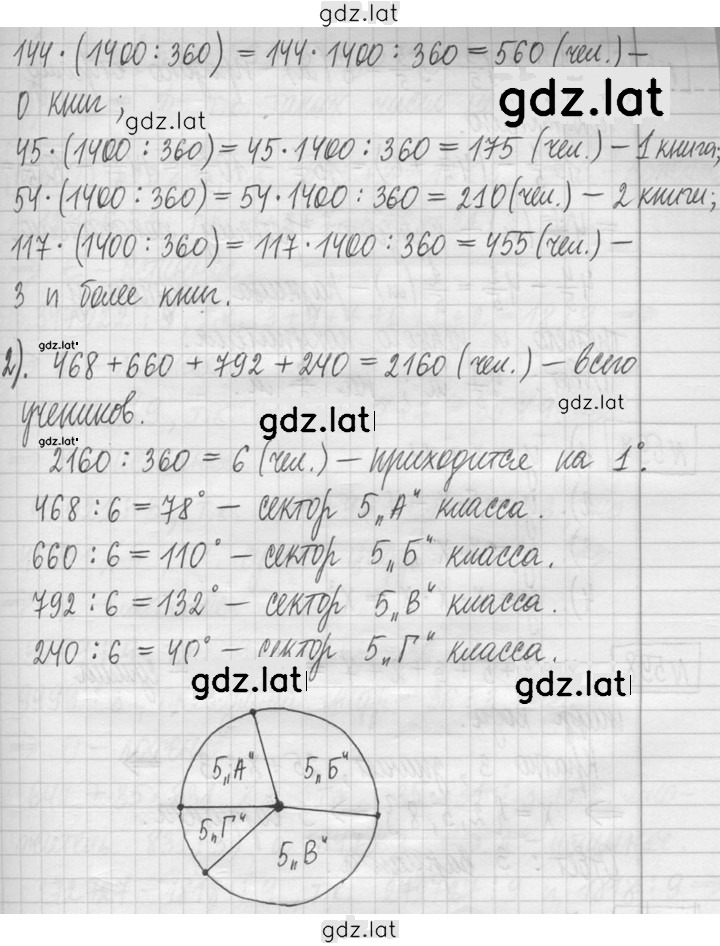 gdz.lat
144·(1400:360) = 144·1400:360 = 560 (чел.) –
0 книг;
gdz.lat
gdz.lat
45·(1400:360) = 45·1400:360 = 175 (чел.) – 1 книга;
54·(1400:360) = 54·1400:360 = 210 (чел.) – 2 книги;
117·(1400:360) = 117·1400:360 = 455 (чел.) –
3 и более книг.
gdz.lat
2). 468 + 660 + 792 + 240 = 2160 (чел.) – всего
учеников.
gdz.lat
gdz.lat
gdz.lat
2160 : 360 = 6 (чел.) – приходится на 1°.
468 : 6 = 78° – сектор 5„А“ класса.
660 : 6 = 110° – сектор 5„Б“ класса.
792 : 6 = 132° – сектор 5„В“ класса.
240 : 6 = 40° – сектор 5„Г“ класса.
gdz.lat
gdz.lat
5„А“
5„Б“
5„Г“
5„В“
gdz.lat